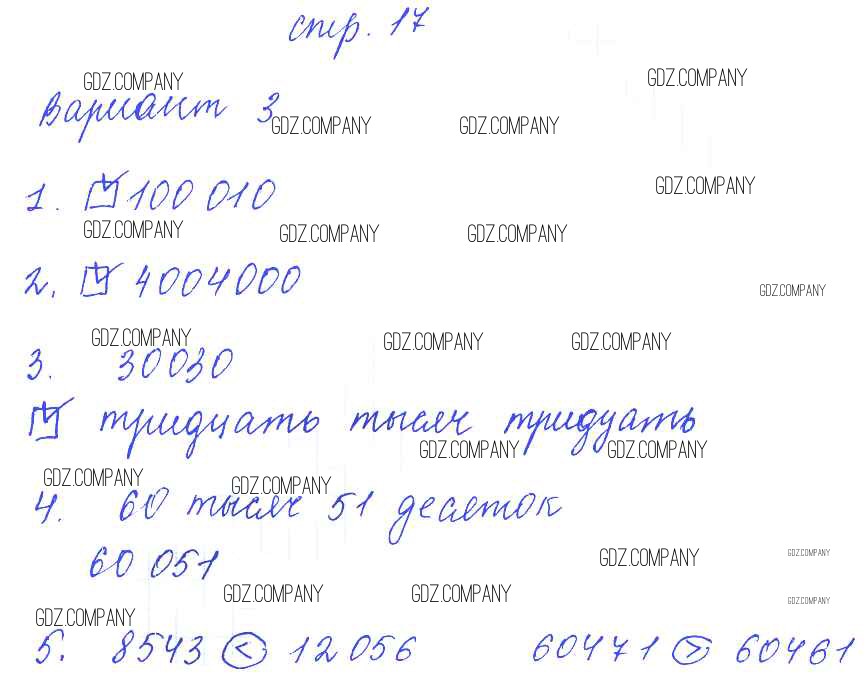 стр. 17
GDZ.COMPANY GDZ.COMPANY
Вариант 3
GDZ.COMPANY GDZ.COMPANY
GDZ.COMPANY
1. ☑ 100 010
GDZ.COMPANY GDZ.COMPANY GDZ.COMPANY
2. ☑ 4004000
GDZ.COMPANY
GDZ.COMPANY GDZ.COMPANY GDZ.COMPANY
3. 30030
☑ тридцать тысяч тридцать
GDZ.COMPANY GDZ.COMPANY
GDZ.COMPANY GDZ.COMPANY
4. 60 тысяч 51 десяток
60 051
GDZ.COMPANY GDZ.COMPANY
GDZ.COMPANY GDZ.COMPANY GDZ.COMPANY
GDZ.COMPANY
5. 8543 < 12056 60471 > 60461